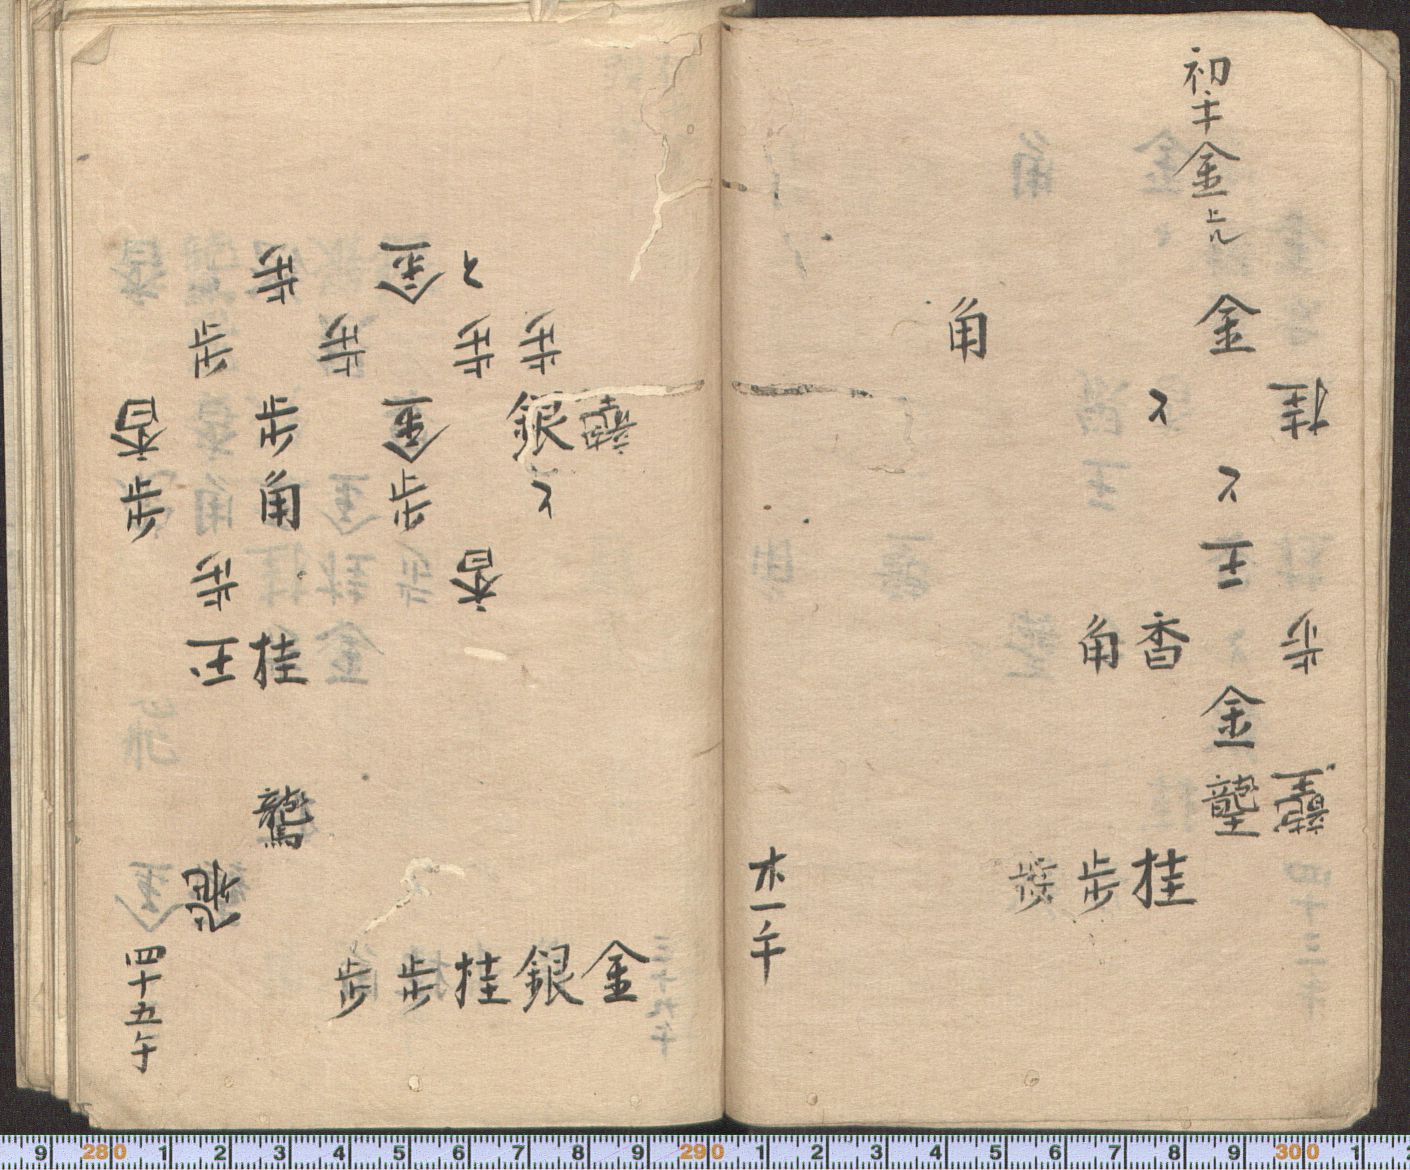 初手金上ル
金
角
と
桂
と
王
香
角
歩
金
龍王
龍王
桂
歩
歩
卄一手
金
と
歩
歩
歩
歩
歩
龍
銀
金
歩
香
と
歩
角
歩
香
歩
桂
王
龍馬
飛
金
銀
桂
歩
歩
四十五手
9 280 1 2 3 4 5 6 7 8 9 290 1 2 3 4 5 6 7 8 9 300 1